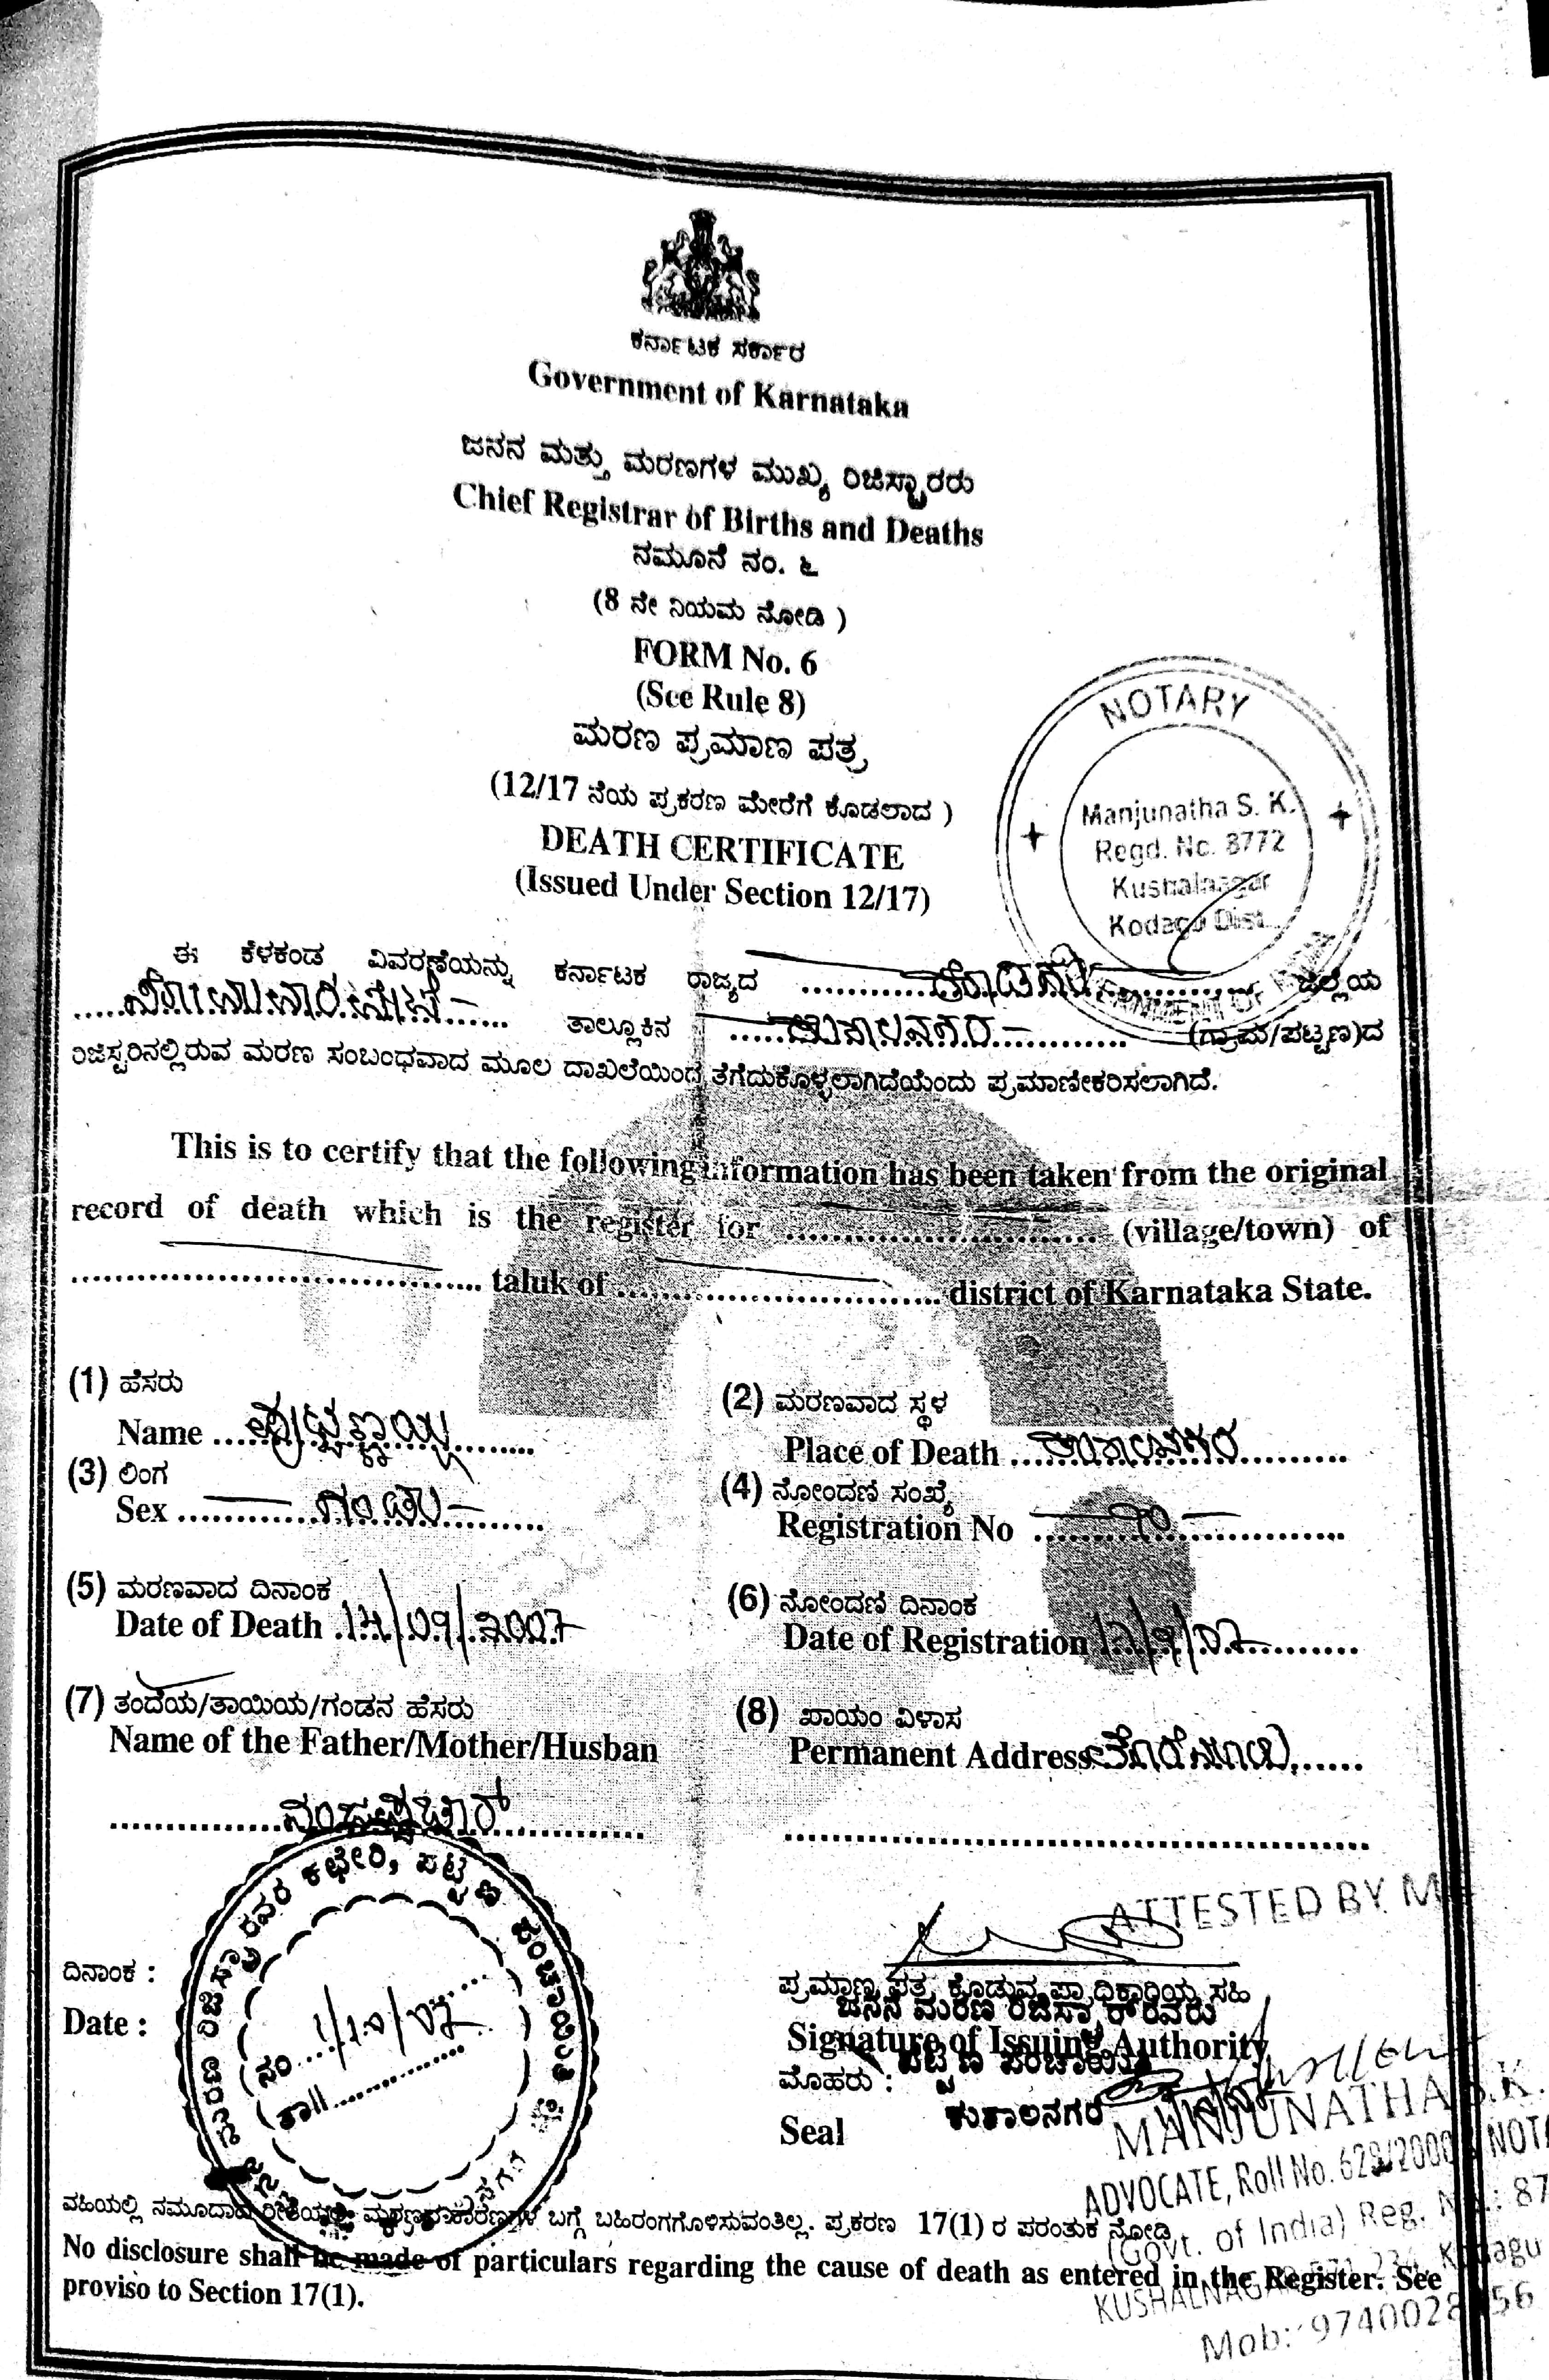 ಕರ್ನಾಟಕ ಸರ್ಕಾರ
Government of Karnataka
ಜನನ ಮತ್ತು ಮರಣಗಳ ಮುಖ್ಯ ರಿಜಿಸ್ಟ್ರಾರರು
Chief Registrar of Births and Deaths
ನಮೂನೆ ನಂ. ೬
(8 ನೇ ನಿಯಮ ನೋಡಿ )
FORM No. 6
(See Rule 8)
ಮರಣ ಪ್ರಮಾಣ ಪತ್ರ
(12/17 ನೆಯ ಪ್ರಕರಣ ಮೇರೆಗೆ ಕೊಡಲಾದ )
DEATH CERTIFICATE
(Issued Under Section 12/17)
NOTARY
Manjunatha S. K.
Regd. No. 8772
Kushalnagar
Kodagu Dist.
ಈ ಕೆಳಕಂಡ ವಿವರಣೆಯನ್ನು ಕರ್ನಾಟಕ ರಾಜ್ಯದ ............ಕೊಡಗು............ ಜಿಲ್ಲೆಯ
.....ಸೋಮವಾರಪೇಟೆ...... ತಾಲ್ಲೂಕಿನ .....ಕುಶಾಲನಗರ............ (ಗ್ರಾಮ/ಪಟ್ಟಣ)ದ
ರಿಜಿಸ್ಟರಿನಲ್ಲಿರುವ ಮರಣ ಸಂಬಂಧವಾದ ಮೂಲ ದಾಖಲೆಯಿಂದ ತೆಗೆದುಕೊಳ್ಳಲಾಗಿದೆಯೆಂದು ಪ್ರಮಾಣೀಕರಿಸಲಾಗಿದೆ.
This is to certify that the following information has been taken from the original
record of death which is the register for ............................ (village/town) of
.................................... taluk of ............................ district of Karnataka State.
(1) ಹೆಸರು
Name
(2) ಮರಣವಾದ ಸ್ಥಳ
Place of Death ... ಕುಶಾಲನಗರ ..........
(3) ಲಿಂಗ
Sex ............ ಗಂಡು ..........
(4) ನೋಂದಣಿ ಸಂಖ್ಯೆ
Registration No
(5) ಮರಣವಾದ ದಿನಾಂಕ
Date of Death /09/2007
(6) ನೋಂದಣಿ ದಿನಾಂಕ
Date of Registration /9/07
(7) ತಂದೆಯ/ತಾಯಿಯ/ಗಂಡನ ಹೆಸರು
Name of the Father/Mother/Husban
(8) ಖಾಯಂ ವಿಳಾಸ
Permanent Address
ರಿಜಿಸ್ಟ್ರಾರವರ ಕಛೇರಿ, ಪಟ್ಟಣ ಪಂಚಾಯಿತಿ
ನಂ.....1/10/07
ತಾ||............
ATTESTED BY ME
ದಿನಾಂಕ :
Date :
ಪ್ರಮಾಣ ಪತ್ರ ಕೊಡುವ ಪ್ರಾಧಿಕಾರಿಯ ಸಹಿ
ಜನನ ಮರಣ ರಿಜಿಸ್ಟ್ರಾರ್‌ರವರು
Signature of Issuing Authority
ಪಟ್ಟಣ ಪಂಚಾಯಿತಿ
ಮೊಹರು :
ಕುಶಾಲನಗರ
Seal
MANJUNATHA S.K.
ADVOCATE, Roll No. 629/2000
(Govt. of India) Reg. No.: 87
KUSHALNAGAR 571 234, Kodagu
Mob: 9740028
ವಹಿಯಲ್ಲಿ ನಮೂದಾದ ರೀತಿಯಲ್ಲಿ ಮರಣದ ಕಾರಣಗಳ ಬಗ್ಗೆ ಬಹಿರಂಗಗೊಳಿಸುವಂತಿಲ್ಲ. ಪ್ರಕರಣ 17(1) ರ ಪರಂತುಕ ನೋಡಿ
No disclosure shall be made of particulars regarding the cause of death as entered in the Register. See
proviso to Section 17(1).